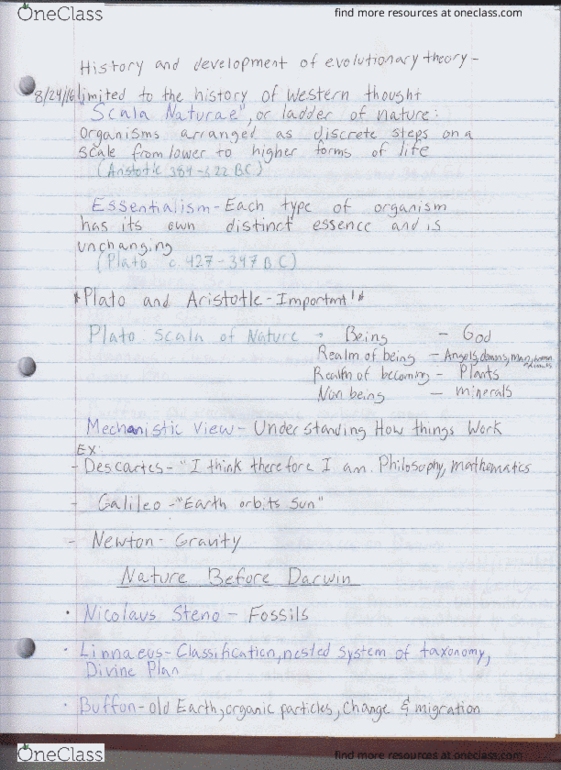 OneClass
find more resources at oneclass.com
History and development of evolutionary theory -
8/24/16 limited to the history of Western thought
"Scala Naturae", or ladder of nature:
Organisms arranged as discrete steps on a
scale from lower to higher forms of life
(Aristotle 384-322 BC)
Essentialism - Each type of organism
has its own distinct essence and is
unchanging
(Plato c 427-347 BC)
*Plato and Aristotle - Important!*
Plato Scala of Nature → Being - God
Realm of being - Angels, demons, man,
Realm of becoming - Plants
Non being - minerals
Mechanistic View - Understanding How things Work
EX:
- Descartes - "I think therefore I am. Philosophy, mathematics
- Galileo - "Earth orbits Sun"
- Newton - Gravity
Nature Before Darwin
• Nicolaus Steno - Fossils
• Linnaeus - Classification, nested system of taxonomy,
Divine Plan
• Buffon - old Earth, organic particles, Change & migration
OneClass
find more resources at oneclass.com